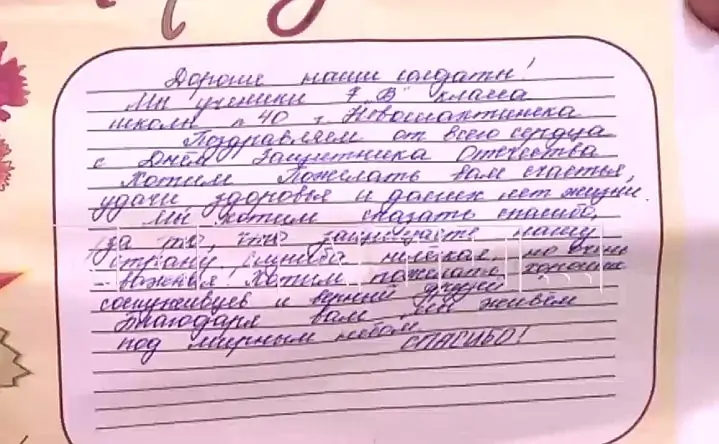 Дорогие наши солдаты!
Мы ученики 7 "В" класса
школы n 40 г. Новошахтинска
Поздравляем от всего сердца
с Днём Защитника Отечества
Хотим Пожелать вам счастья,
удачи здоровья и долгих лет жизни.
Мы хотим сказать спасибо,
за то, что защищаете нашу
страну нелёгкая, но очень
важная! Хотим пожелать, хороших
сослуживцев и верных друзей
Благодаря вам мы живём
под мирным небом.
СПАСИБО!